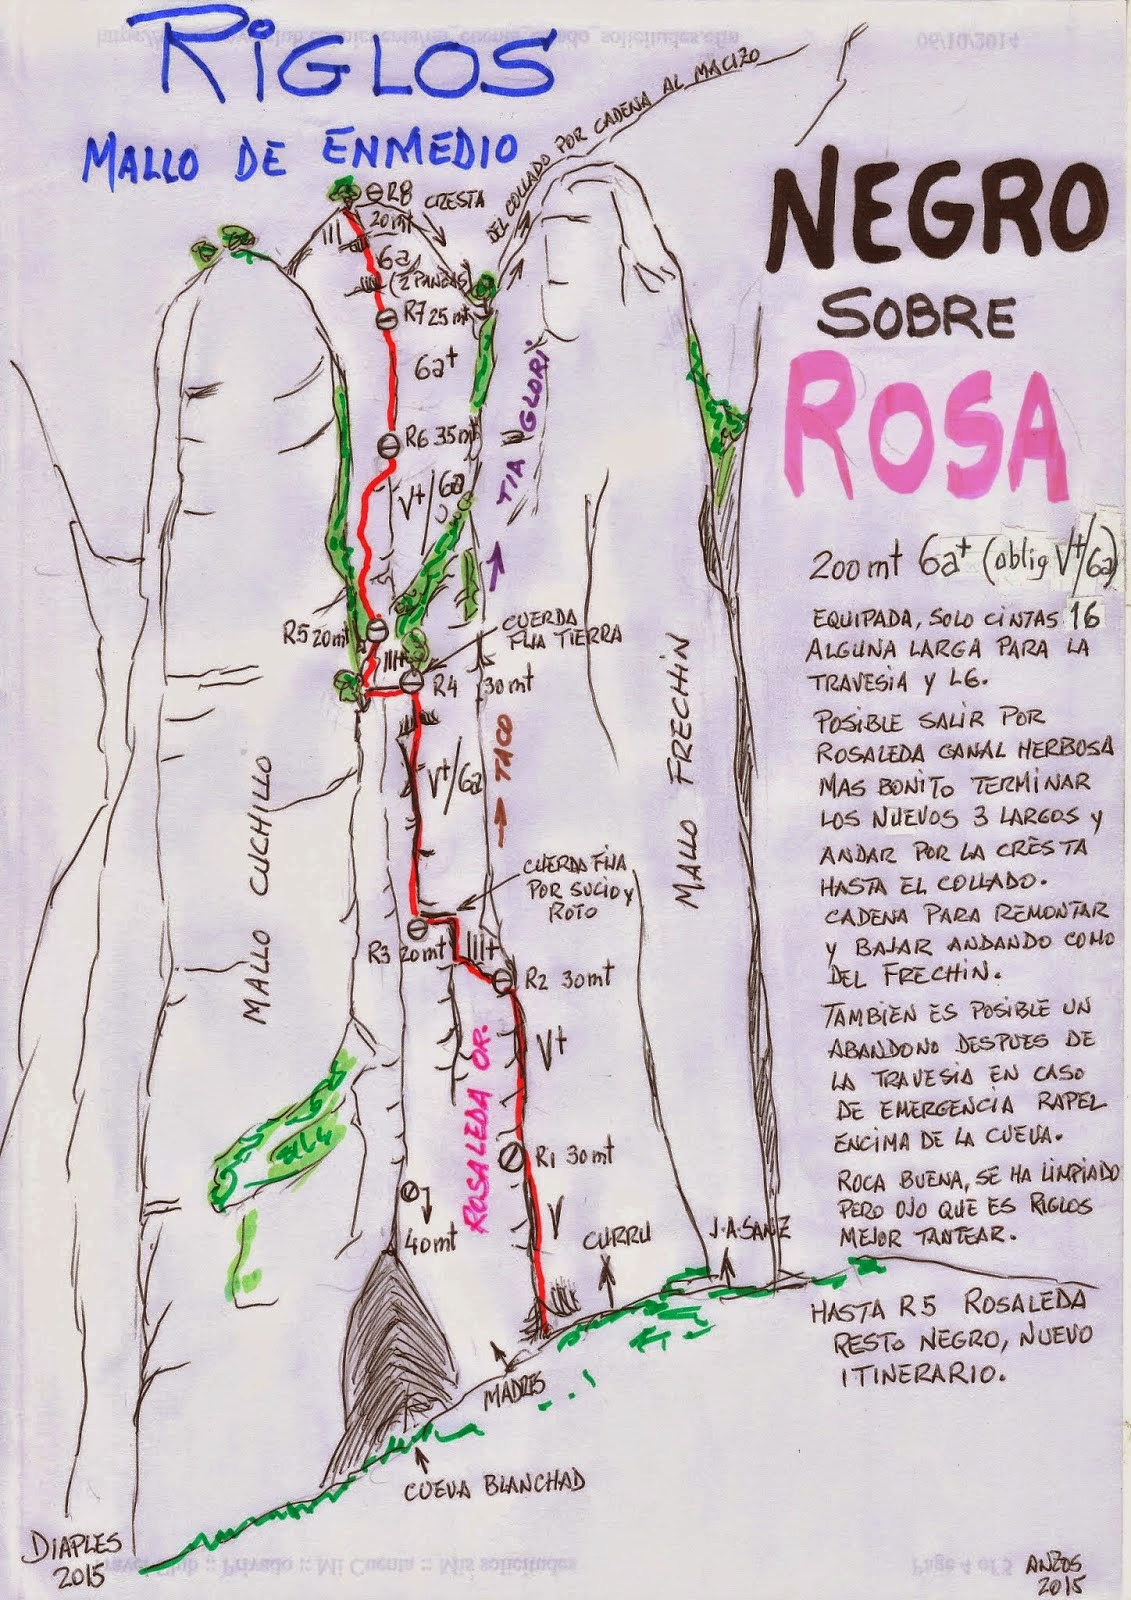 RIGLOS
MALLO DE ENMEDIO
NEGRO
SOBRE
ROSA
200 mt 6a+ (oblig V+/6a)
EQUIPADA, SOLO CINTAS 16
ALGUNA LARGA PARA LA
TRAVESIA Y L6.
POSIBLE SALIR POR
ROSALEDA CANAL HERBOSA
MAS BONITO TERMINAR
LOS NUEVOS 3 LARGOS Y
ANDAR POR LA CRESTA
HASTA EL COLLADO.
CADENA PARA REMONTAR
Y BAJAR ANDANDO COMO
DEL FRECHIN.
TAMBIEN ES POSIBLE UN
ABANDONO DESPUES DE
LA TRAVESIA EN CASO
DE EMERGENCIA RAPEL
ENCIMA DE LA CUEVA.
ROCA BUENA, SE HA LIMPIADO
PERO OJO QUE ES RIGLOS
MEJOR TANTEAR.
HASTA R5 ROSALEDA
RESTO NEGRO, NUEVO
ITINERARIO.
DEL COLLADO POR CADENA AL MACIZO
R8 CRESTA
20 mt
III
6a
(2 PANZAS)
R7 25 mt
6a+
TIA GLORI
R6 35 mt
V+/6a
CUERDA
FIJA TIERRA
R5 20 mt
III+
R4 30 mt
TACO
V+/6a
MALLO CUCHILLO
MALLO FRECHIN
CUERDA FIJA
POR SUCIO Y
ROTO
R3 20 mt
III+
R2 30 mt
V+
ROSALEDA OR.
R1 30 mt
V
40 mt
CURRU
J.A. SANZ
MADRES
CUEVA BLANCHAD
DIAPLES
2015
ANZOS
2015
06/10/2014
Privado :: Mi Cuenta :: Mis solicitudes